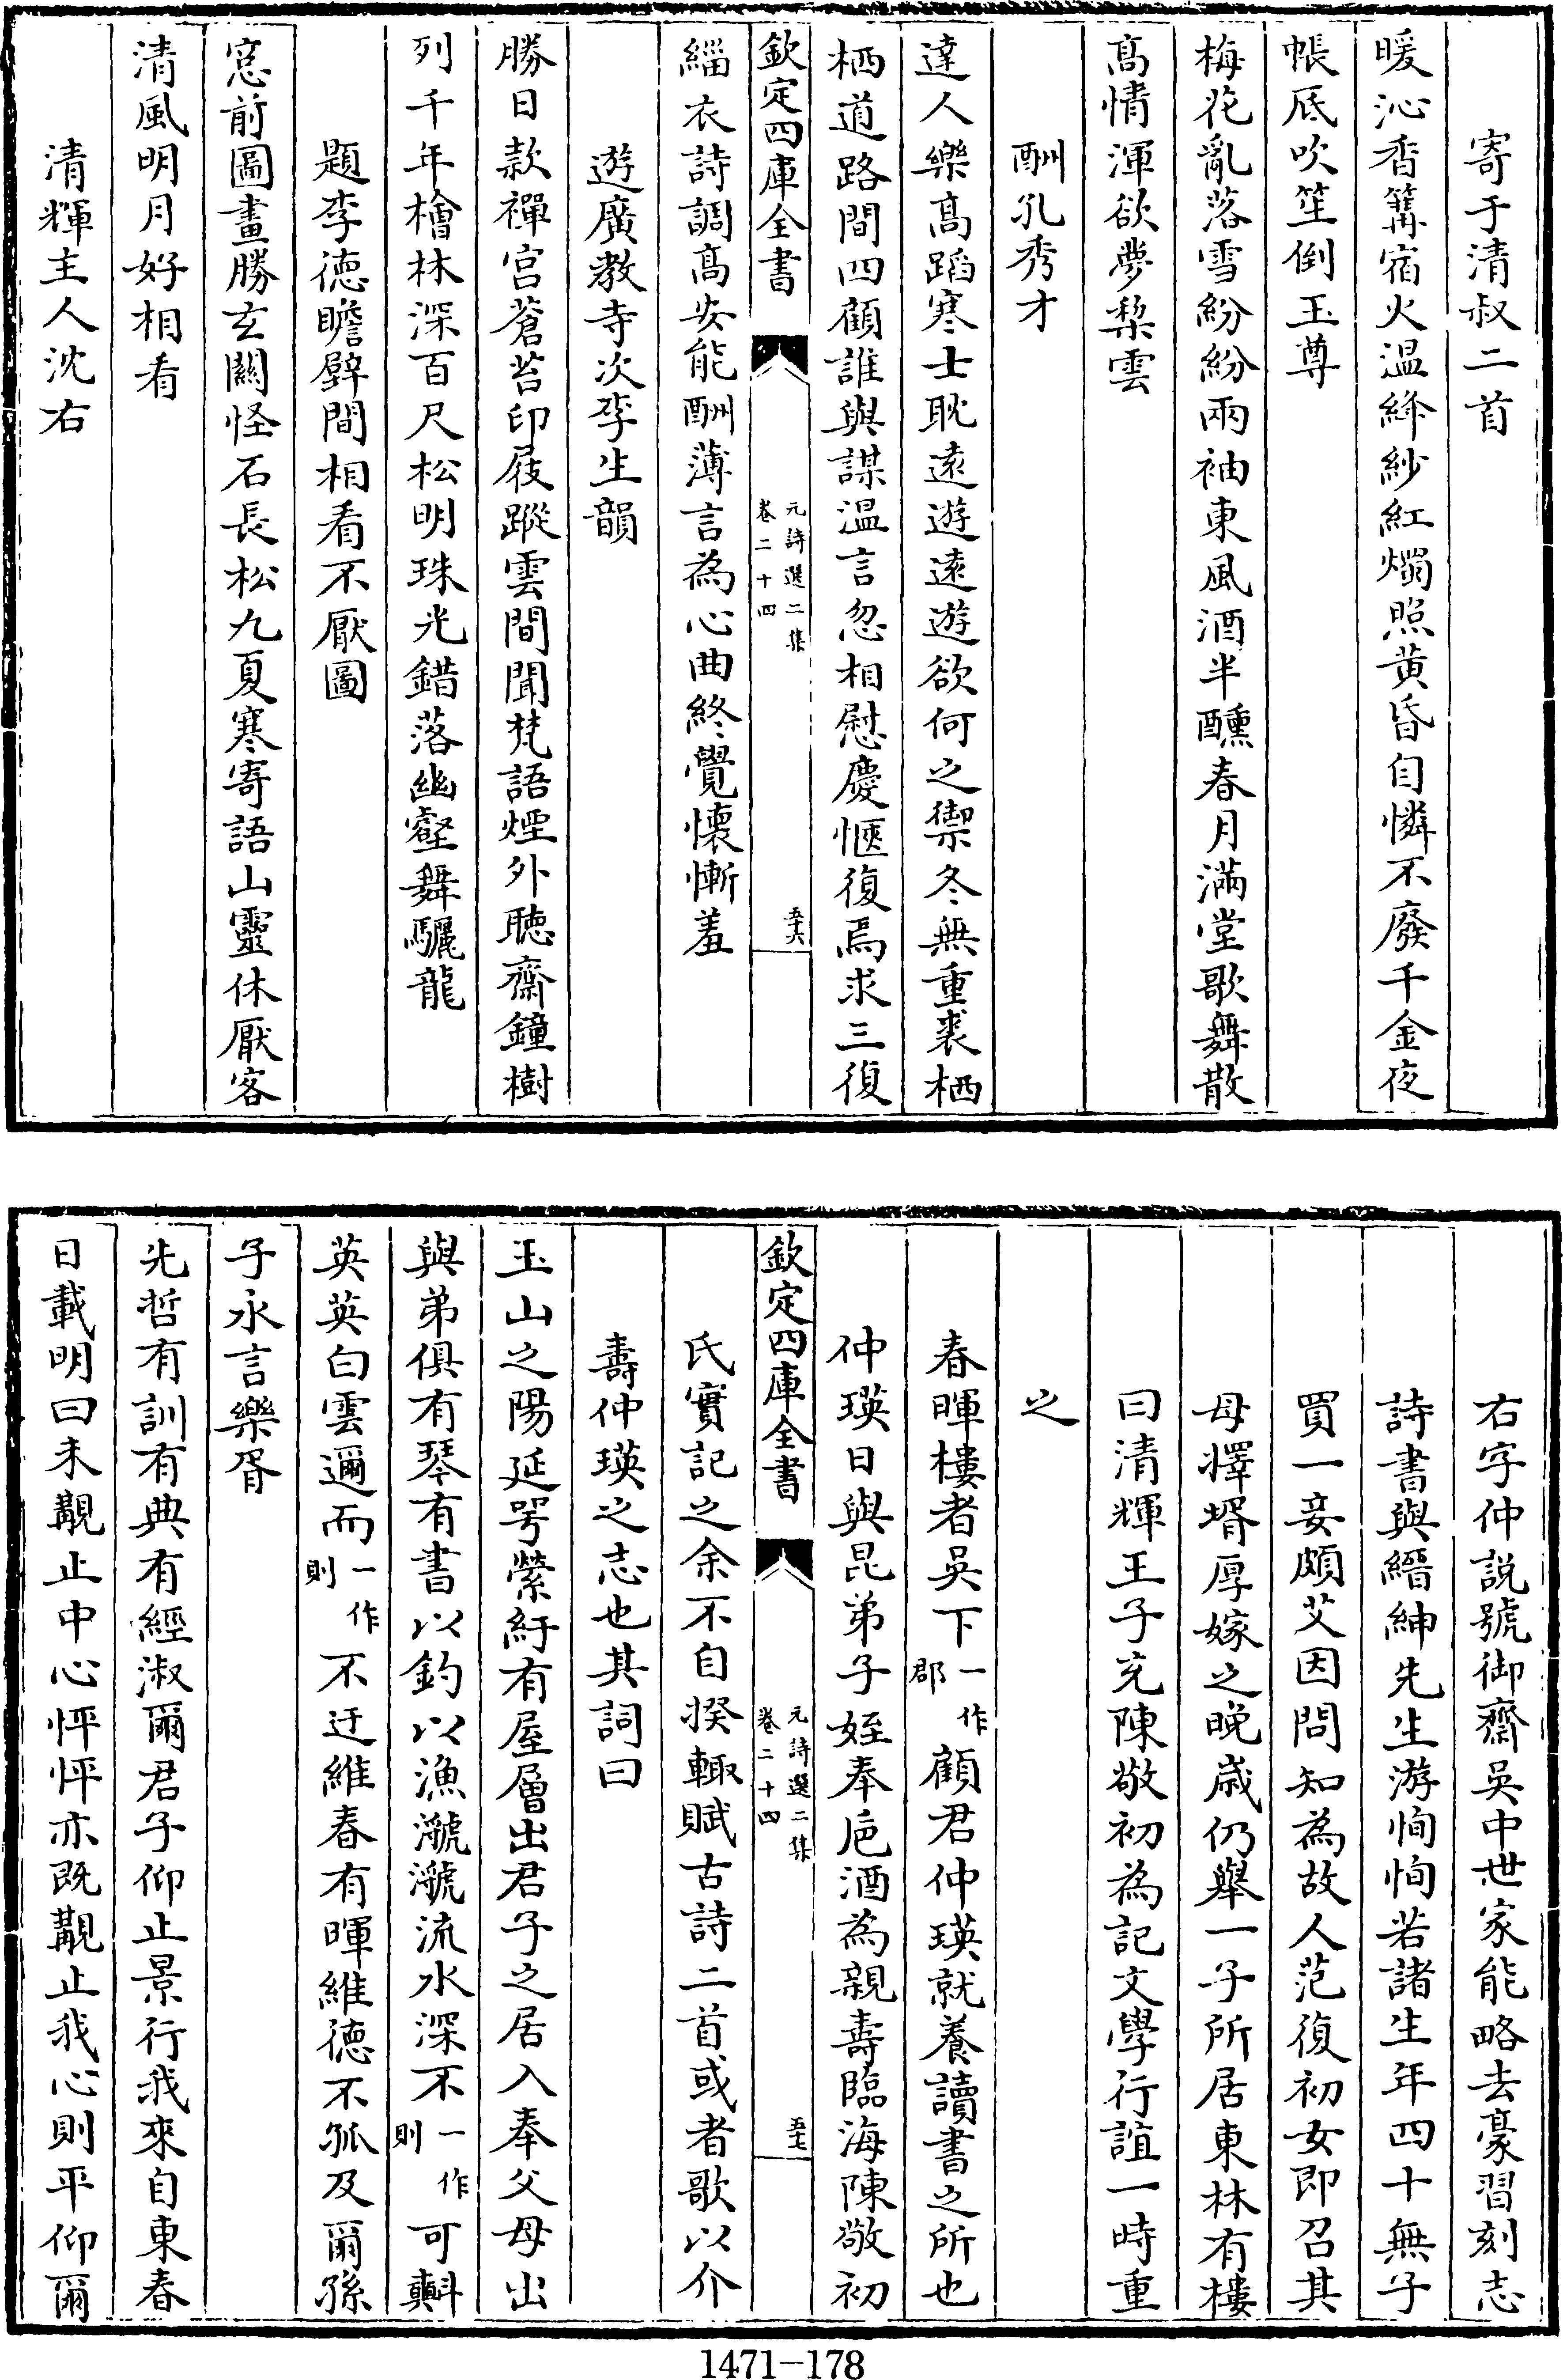 寄于清叔二首
暖沁香篝宿火温絳紗紅燭照黄昏自憐不廢千金夜
帳底吹笙倒玉尊
梅花亂落雪紛紛兩袖東風酒半醺春月滿堂歌舞散
髙情渾欲夢棃雲
酬孔秀才
達人樂髙蹈寒士耽遠遊遠遊欲何之禦冬無重裘栖
栖道路間四顧誰與謀温言忽相慰慶愜復焉求三復
欽定四庫全書
元詩選二集
卷二十四
五十六
緇衣詩調髙安能酬薄言為心曲終覺懷慚羞
遊廣教寺次李生韻
勝日款禪宫蒼苔印屐蹤雲間聞梵語煙外聽齋鐘樹
列千年檜林深百尺松明珠光錯落幽壑舞驪龍
題李德瞻壁間相看不厭圖
窓前圖畫勝玄闗怪石長松九夏寒寄語山靈休厭客
清風明月好相看
清輝主人沈右
右字仲説號御齋吳中世家能略去豪習刻志
詩書與縉紳先生游恂恂若諸生年四十無子
買一妾頗艾因問知為故人范復初女即召其
母擇壻厚嫁之晩歳仍舉一子所居東林有樓
曰清輝王子充陳敬初為記文學行誼一時重
之
春暉樓者吳下一作郡顧君仲瑛就養讀書之所也
仲瑛日與昆弟子姪奉巵酒為親壽臨海陳敬初
欽定四庫全書
元詩選二集
卷二十四
五十七
氏實記之余不自揆輙賦古詩二首或者歌以介
壽仲瑛之志也其詞曰
玉山之陽延咢縈紆有屋層出君子之居入奉父母出
與弟俱有琴有書以釣以漁㶁㶁流水深不一作則可㪺
英英白雲邇而一作則不迂維春有暉維德不孤及爾孫
子永言樂胥
先哲有訓有典有經淑爾君子仰止景行我來自東春
日載明曰未覯止中心怦怦亦既覯止我心則平仰爾
1471-178